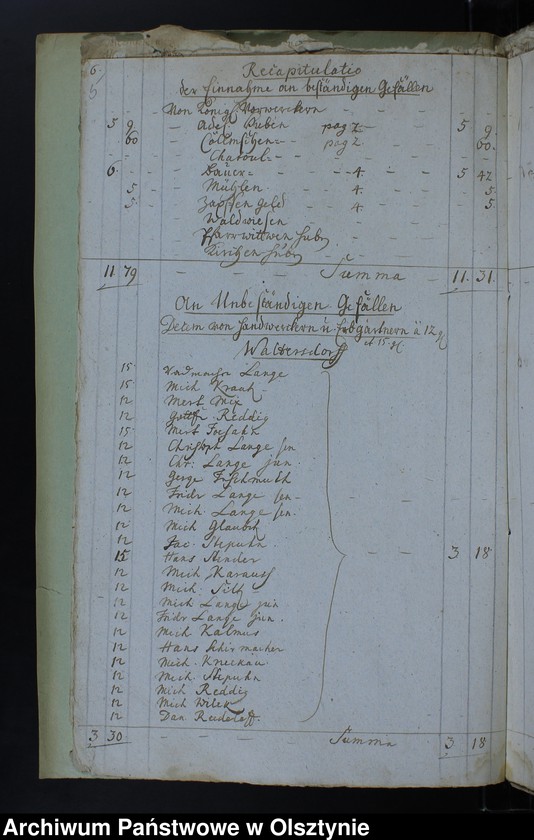 6.
Recapitulatio
der Einnahme an beständigen Gefällen
Von Königl. Vorwerckern - -
5 9 - Adel. Huben pag 2 - 5 9.
60 - Cöllmschen - pag 2 60.
- Chatoul - -
6. - Bauer - - 4. - 5 42
5 - Mühlen - 4. - 5.
5. - Zapffen Geld - 4 - 5.
- Waldwiesen -
- Pfarrwittwen Huben
- Kirchen Huben
11 79 - - - Summa - 11. 31.
An Unbeständigen Gefällen
Decem von Handwerckern u. Erbgärtnern à 12 gl
et 15. gl.
Waltersdorff
15. Lange
15 Mich Kraatz
12 Mert Mix
12 Gottfr. Reddig
15 Mert
12 Christoph Lange sen
12 Chr: Lange jun.
12 George Fischmuth
12 Fridr Lange sen -
12 Mich. Lange sen.
12 Mich Glaubitz
12 Jac. Stepuhn - - - 3 18
15 Hans
12 Mich Karausch
12 Mich.
12 Mich Lange jun
12 Fridr Lange jun.
12 Mich Kalmus
12 Hans Schirmacher
12 Mich. Kneckau
12 Mich. Stepuhn
12 Mich Reddig
12 Mich Wilck
12 Dan Rudeloff
3 30 - - - Summa 3 18
Archiwum Państwowe w Olsztynie